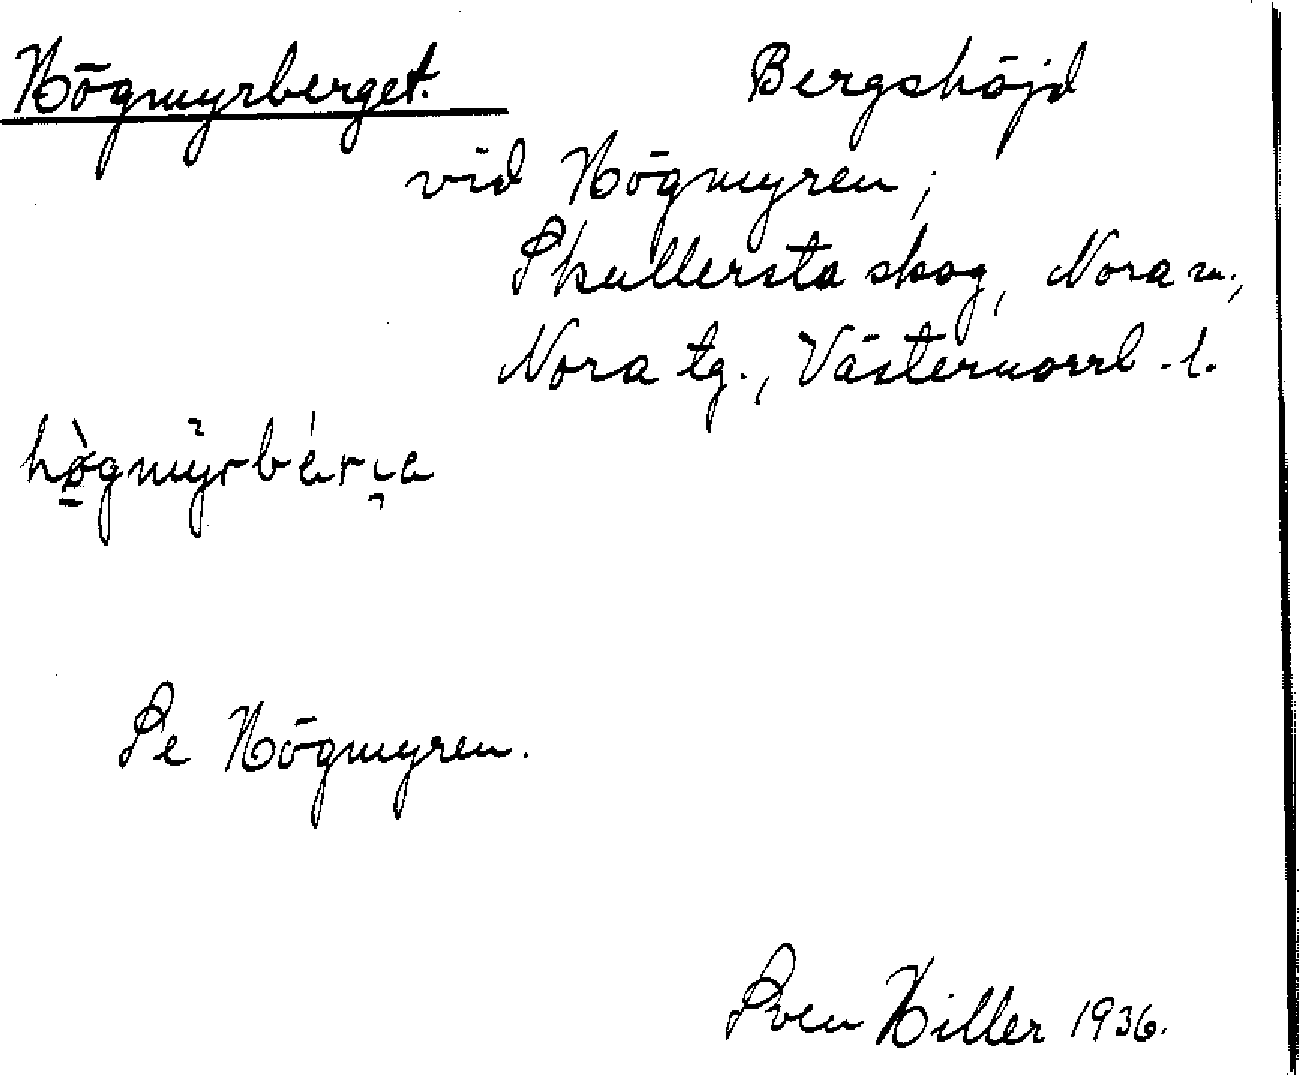 Högmyrberget. Bergshöjd
vid Högmyren,
Skullersta skog, Nora sn.,
Nora tg., Västernorrl. l.
Se Högmyren.
Sven Hiller 1936.